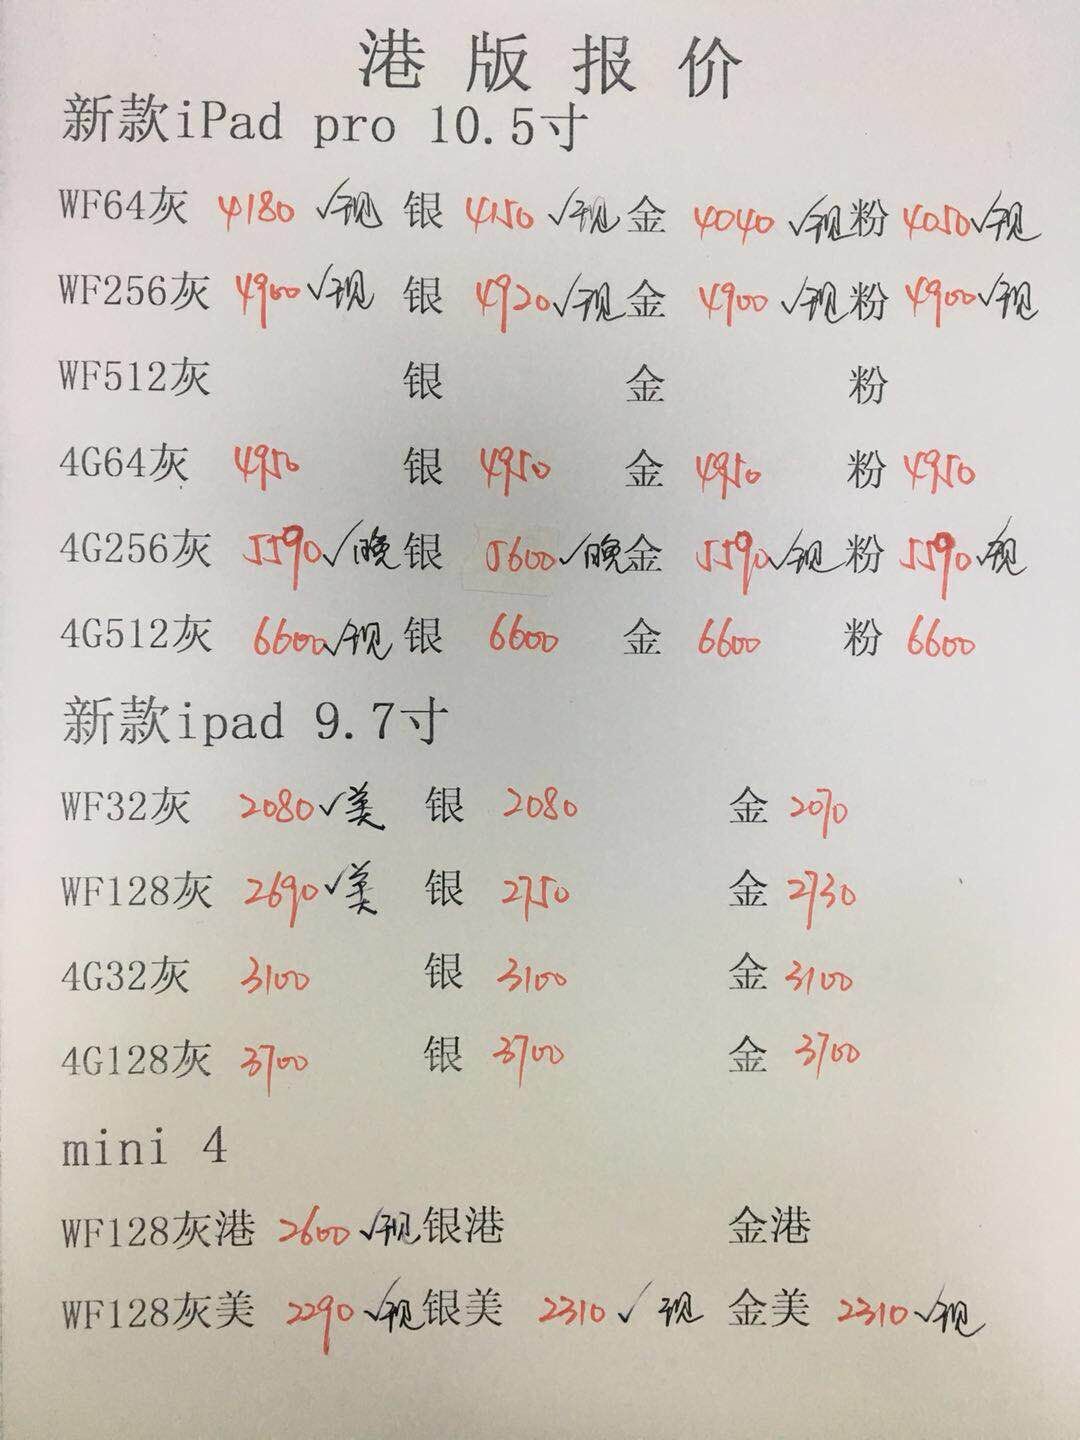 港版报价
新款iPad pro 10.5寸
WF64灰 4180 √现 银 4150 √现 金 4040 √现 粉 4050 √现
WF256灰 4900 √现 银 4920 √现 金 4900 √现 粉 4900 √现
WF512灰 银 金 粉
4G64灰 4950 银 4950 金 4950 粉 4950
4G256灰 5590 √晚 银 5600 √晚 金 5590 √现 粉 5590 √现
4G512灰 6600 √现 银 6600 金 6600 粉 6600
新款ipad 9.7寸
WF32灰 2080 √美 银 2080 金 2070
WF128灰 2690 √美 银 2750 金 2730
4G32灰 3100 银 3100 金 3100
4G128灰 3700 银 3700 金 3700
mini 4
WF128灰港 2600 √现 银港 金港
WF128灰美 2290 √现 银美 2310 √现 金美 2310 √现